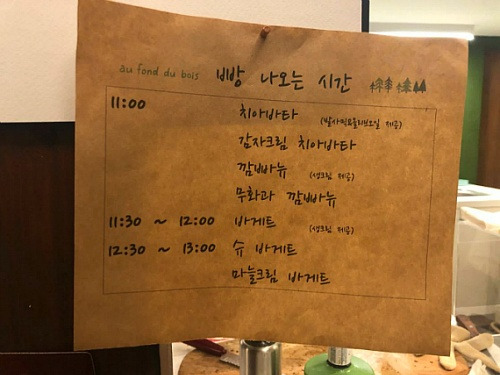 au fond du bois 빵 나오는 시간
11:00 치아바타 (발사믹&올리브오일 제공)
감자크림 치아바타
깜빠뉴 (생크림 제공)
무화과 깜빠뉴
11:30 ~ 12:00 바게트 (생크림 제공)
12:30 ~ 13:00 슈 바게트
마늘크림 바게트